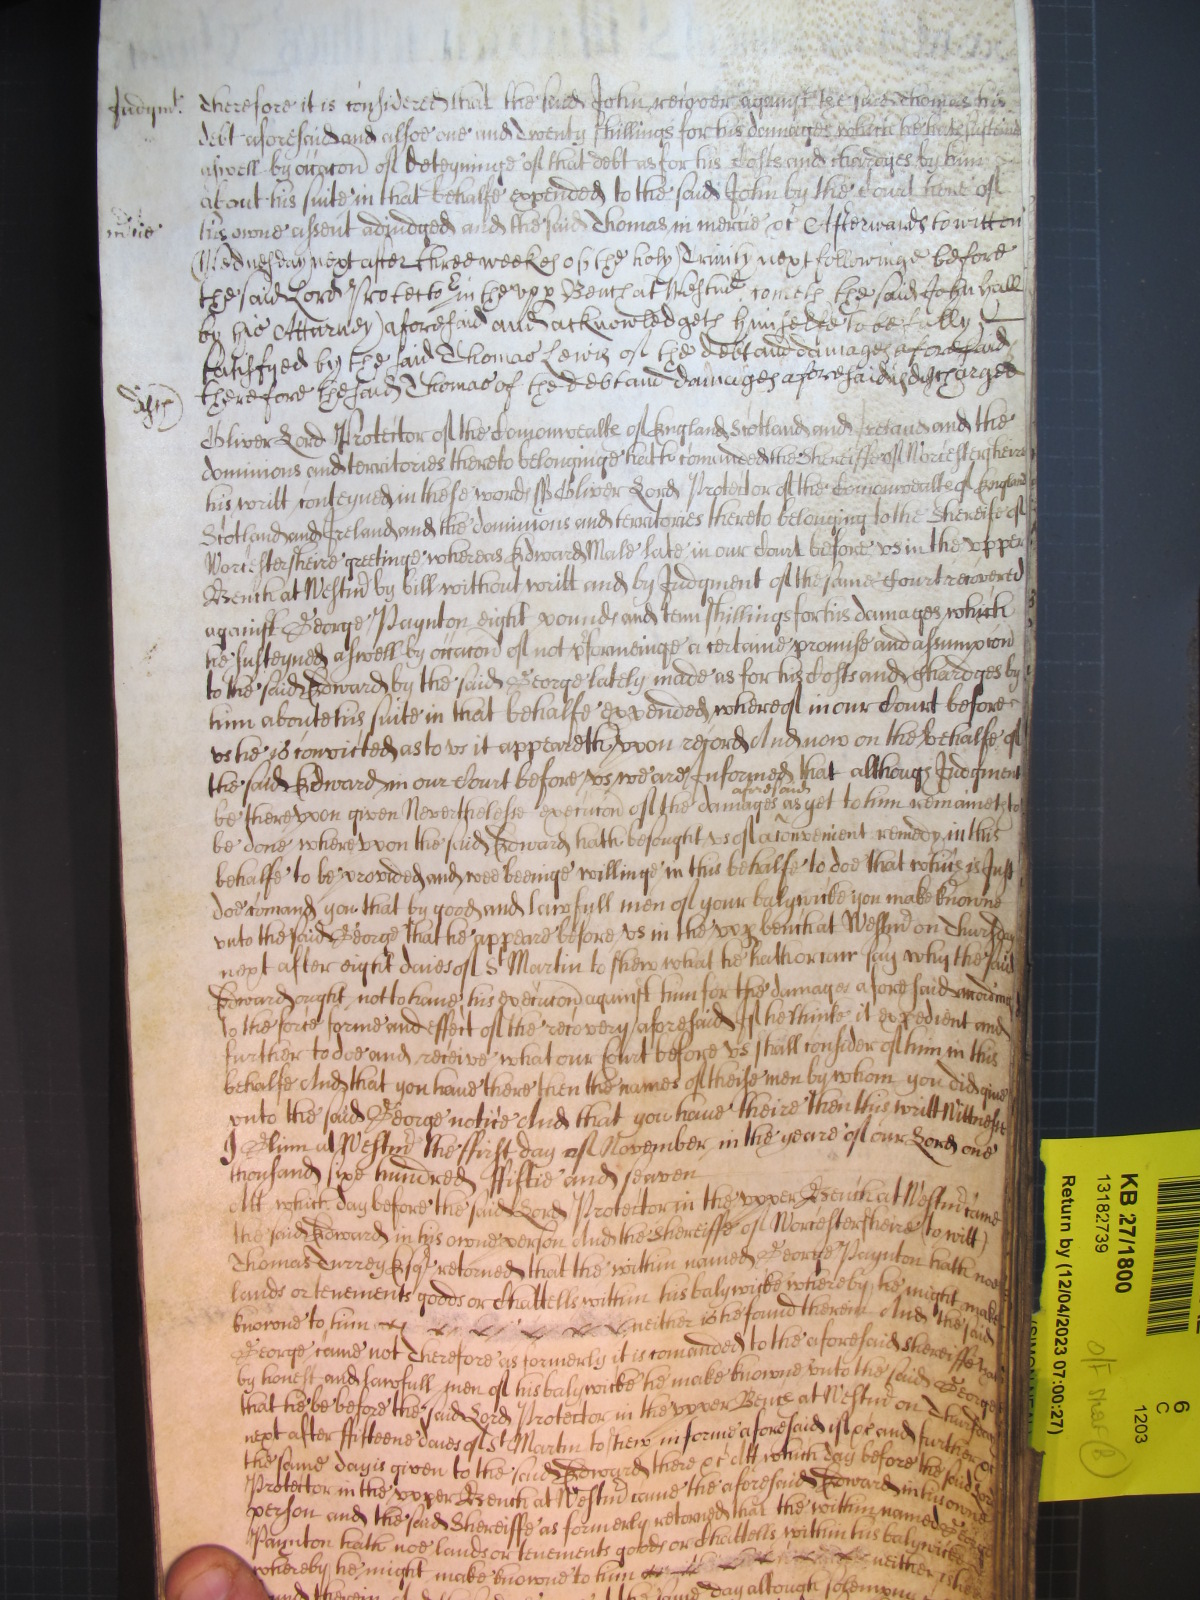 Judgmt. Therefore it is considered that the said John recover against the said Thomas his
debt aforesaid and alsoe one and twenty shillings for his damages which he hath susteined
aswell by occacon of deteyninge of that debt as for his Costs and chardges by him
about his suite in that behalfe expended to the said John by the Court here of
mcie his owne assent adiudged and the said Thomas in mercie &c Afterwards to witt on
Wednesday next after three weekes of the holy Trinity next followinge before
the said Lord Protector in the vpp Bench at Westmr. cometh the said John Hall
by his Attorney aforesaid and acknowledgeth himselfe to be fully
satisfyed by the said Thomas Lewis of the debt and damages aforesaid
therefore the said Thomas of the debt and damages aforesaid is discharged
Oliver Lord Protector of the Comonwealth of England Scotland and Ireland and the
dominions and territories thereto belonginge hath comanded the Shereiffe of Worcestersheire
his writt conteyned in these words ss Oliver Lord Protector of the Comonwealth of England
Scotland and Ireland and the dominions and territories thereto belonging to the Shereife of
Worcestersheire greetinge whereas Edward Male late in our Court before vs in the vpper
Bench at Westmr by bill without writt and by Judgment of the same Court recovered
against George Paynton eight pounds and tenn shillings for his damages which
he susteyned aswell by occacon of not pformeinge a certaine promise and assumpcon
to the said Edward by the said George lately made as for his Costs and chardges by
him about his suite in that behalfe expended whereof in our Court before
vs he is convicted as to vs it appeareth vpon record And now on the behalfe of
the said Edward in our Court before vs we are Informed that although Judgment
be therevpon given Neverthelesse execucon of the damages aforesaid as yet to him remaineth to
be done wherevpon the said Edward hath besought vs of a convenient remedy in this
behalfe to be provided and wee beeinge willinge in this behalfe to doe that which is Just
doe comand you that by good and lawfull men of your balywicke you make knowne
vnto the said George that he appeare before vs in the vpp bench at Westmr on Thursday
next after eight daies of St Martin to shew what he hath or can say why the said
Edward ought not to have his execucon against him for the damages aforesaid accordinge
to the force forme and effect of the recovery aforesaid if he thinke it expedient and
further to doe and receive what our Court before vs shall consider of him in this
behalfe And that you have there then the names of theise men by whom you did give
vnto the said George notice And that you have theire then this writt Wittnesse
J Glinn at Westmr the ffirst day of November in the yeare of our Lord one
thousand sixe hundred ffiftie and seaven
Att which day before the said Lord Protector in the vpper Bench at Westmr came
the said Edward in his owne person And the Shereiffe of Worcestersheire (to witt)
Thomas Esqr retorned that the within named George Paynton hath noe
lands or tenements goods or Chattells within his balywicke whereby he might make
knowne to him neither is he found therein And the said
George came not Therefore as formerly it is comanded to the aforesaid Shereiffe that
by honest and lawfull men of his balywicke he make knowne vnto the said George
that he be before the said Lord Protector in the vpper Bench at Westmr on Thursday
next after ffifteene daies of St Martin to shew in forme aforesaid if &c and further &c
the same day is given to the said Edward there &c Att which day before the said Lord
Protector in the vpper Bench at Westmr came the aforesaid Edward in his owne
person and the said Shereiffe as formerly retorned that the within named George
Paynton hath noe lands or tenements goods or chattells within his balywicke
whereby he might make knowne to him neither is he
found therein And the same day although solemnly
KB 27/1800
13182739
Return by (12/04/2023 07:00:27)
6
C
1203